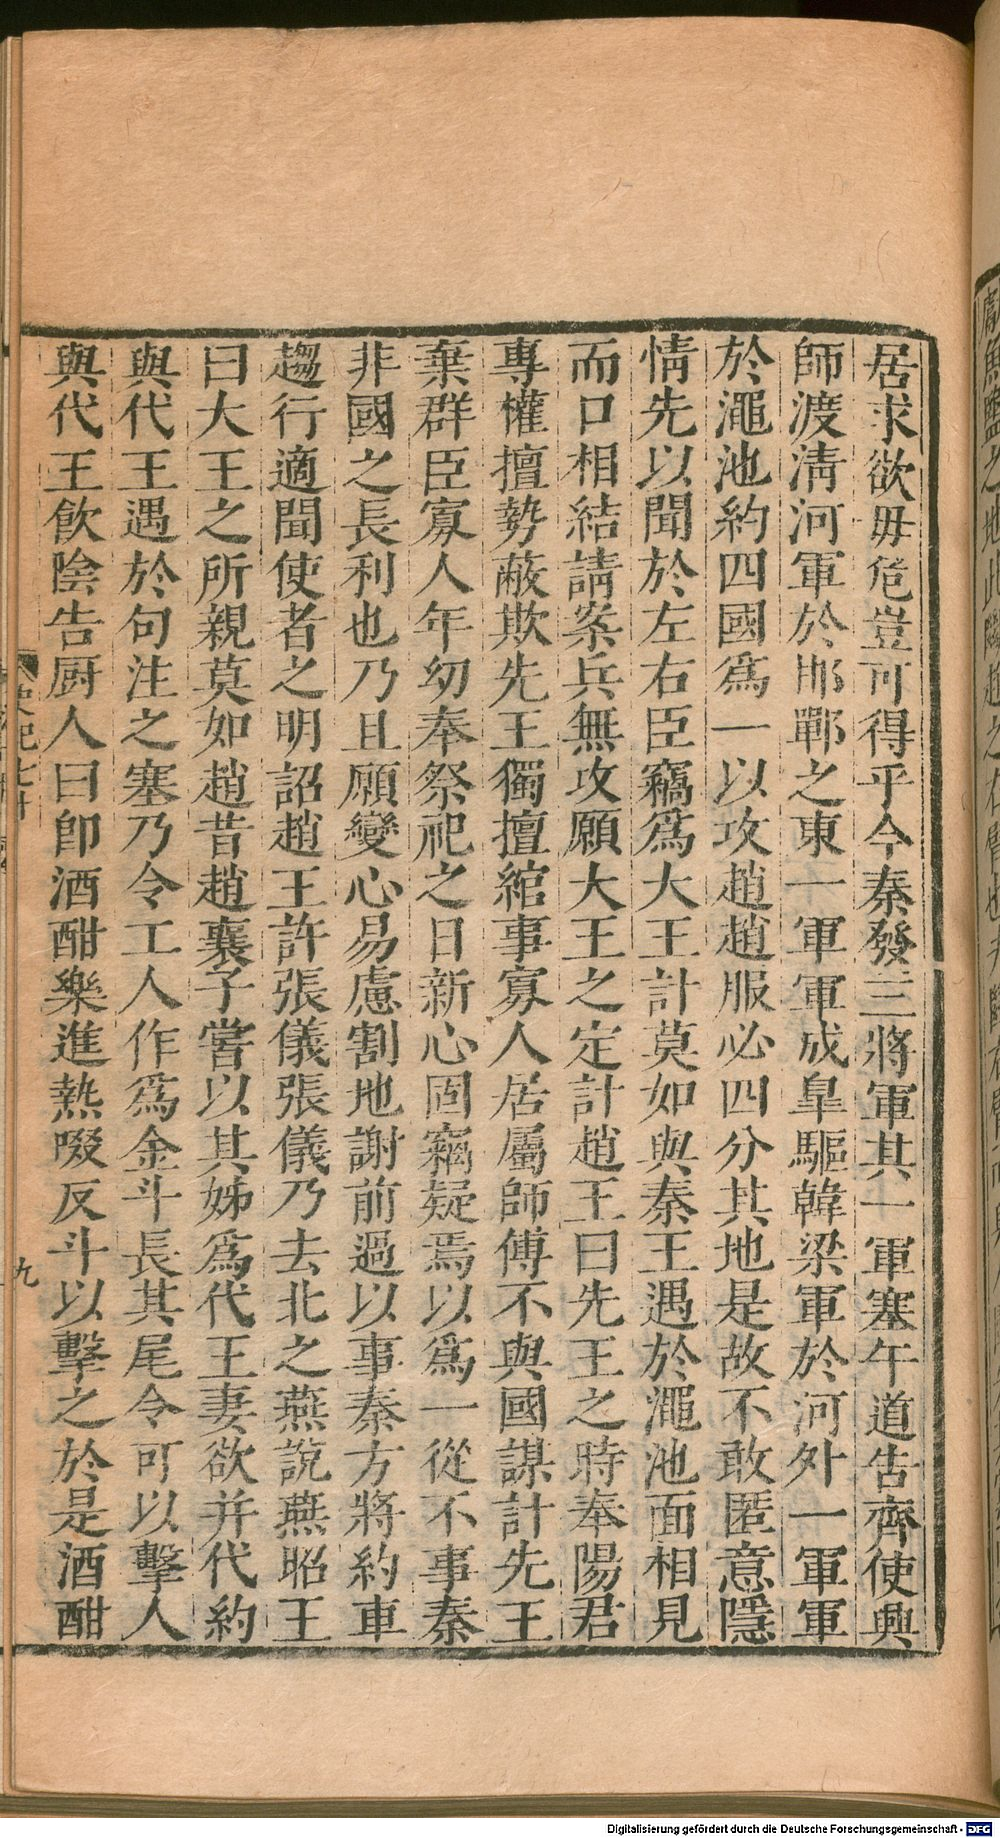 居求欲毋危豈可得乎今秦發三將軍其一軍塞午道告齊使興
師渡淸河軍於邯鄲之東一軍軍成臯驅韓梁軍於河外一軍軍
於澠池約四國爲一以攻趙趙服必四分其地是故不敢匿意隱
情先以聞於左右臣竊爲大王計莫如與秦王遇於澠池面相見
而口相結請案兵無攻願大王之定計趙王曰先王之時奉陽君
專權擅勢蔽欺先王獨擅綰事寡人居屬師傅不與國謀計先王
棄群臣寡人年幼奉祭祀之日新心固竊疑焉以爲一從不事秦
非國之長利也乃且願變心易慮割地謝前過以事秦方將約車
趨行適聞使者之明詔趙王許張儀張儀乃去北之燕說燕昭王
曰大王之所親莫如趙昔趙襄子嘗以其姊爲代王妻欲并代約
與代王遇於句注之塞乃令工人作爲金斗長其尾令可以擊人
與代王飮陰告厨人曰卽酒酣樂進熱啜反斗以擊之於是酒酣
史記七十
九
Digitalisierung gefördert durch die Deutsche Forschungsgemeinschaft - DFG